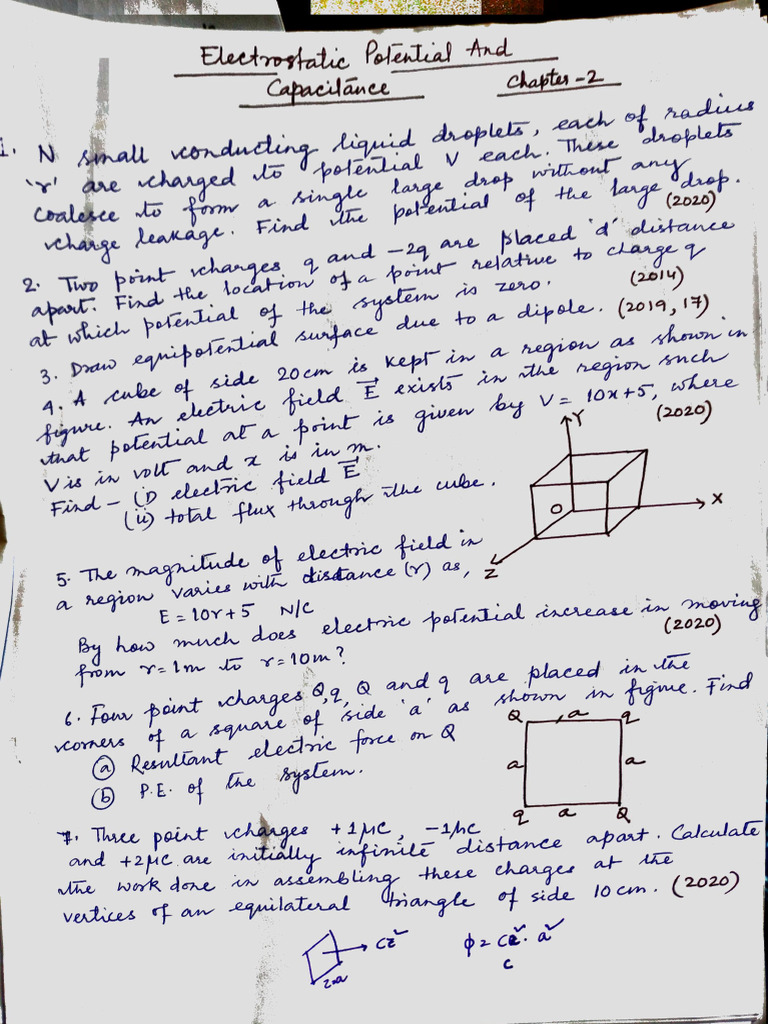 Electrostatic Potential And
Capacitance Chapter-2
1. N small conducting liquid droplets, each of radius
'r' are charged to potential V each. These droplets
coalesce to form a single large drop without any
charge leakage. Find the potential of the large drop.
(2020)
2. Two point charges q and -2q are placed 'd' distance
apart. Find the location of a point relative to charge q
at which potential of the system is zero. (2014)
3. Draw equipotential surface due to a dipole. (2019, 17)
4. A cube of side 20cm is kept in a region as shown in
figure. An electric field E⃗ exists in the region such
that potential at a point is given by V = 10x+5, where
V is in volt and x is in m. (2020)
Find - (i) electric field E⃗
(ii) total flux through the cube.
Y
O
X
Z
5. The magnitude of electric field in
a region varies with distance (r) as,
E = 10r+5 N/C
By how much does electric potential increase in moving
from r=1m to r=10m? (2020)
6. Four point charges Q, q, Q and q are placed in the
corners of a square of side 'a' as shown in figure. Find
(a) Resultant electric force on Q
(b) P.E. of the system.
Q a q
a a
q a Q
7. Three point charges +1μC, -1μC
and +2μC are initially infinite distance apart. Calculate
the work done in assembling these charges at the
vertices of an equilateral triangle of side 10cm. (2020)